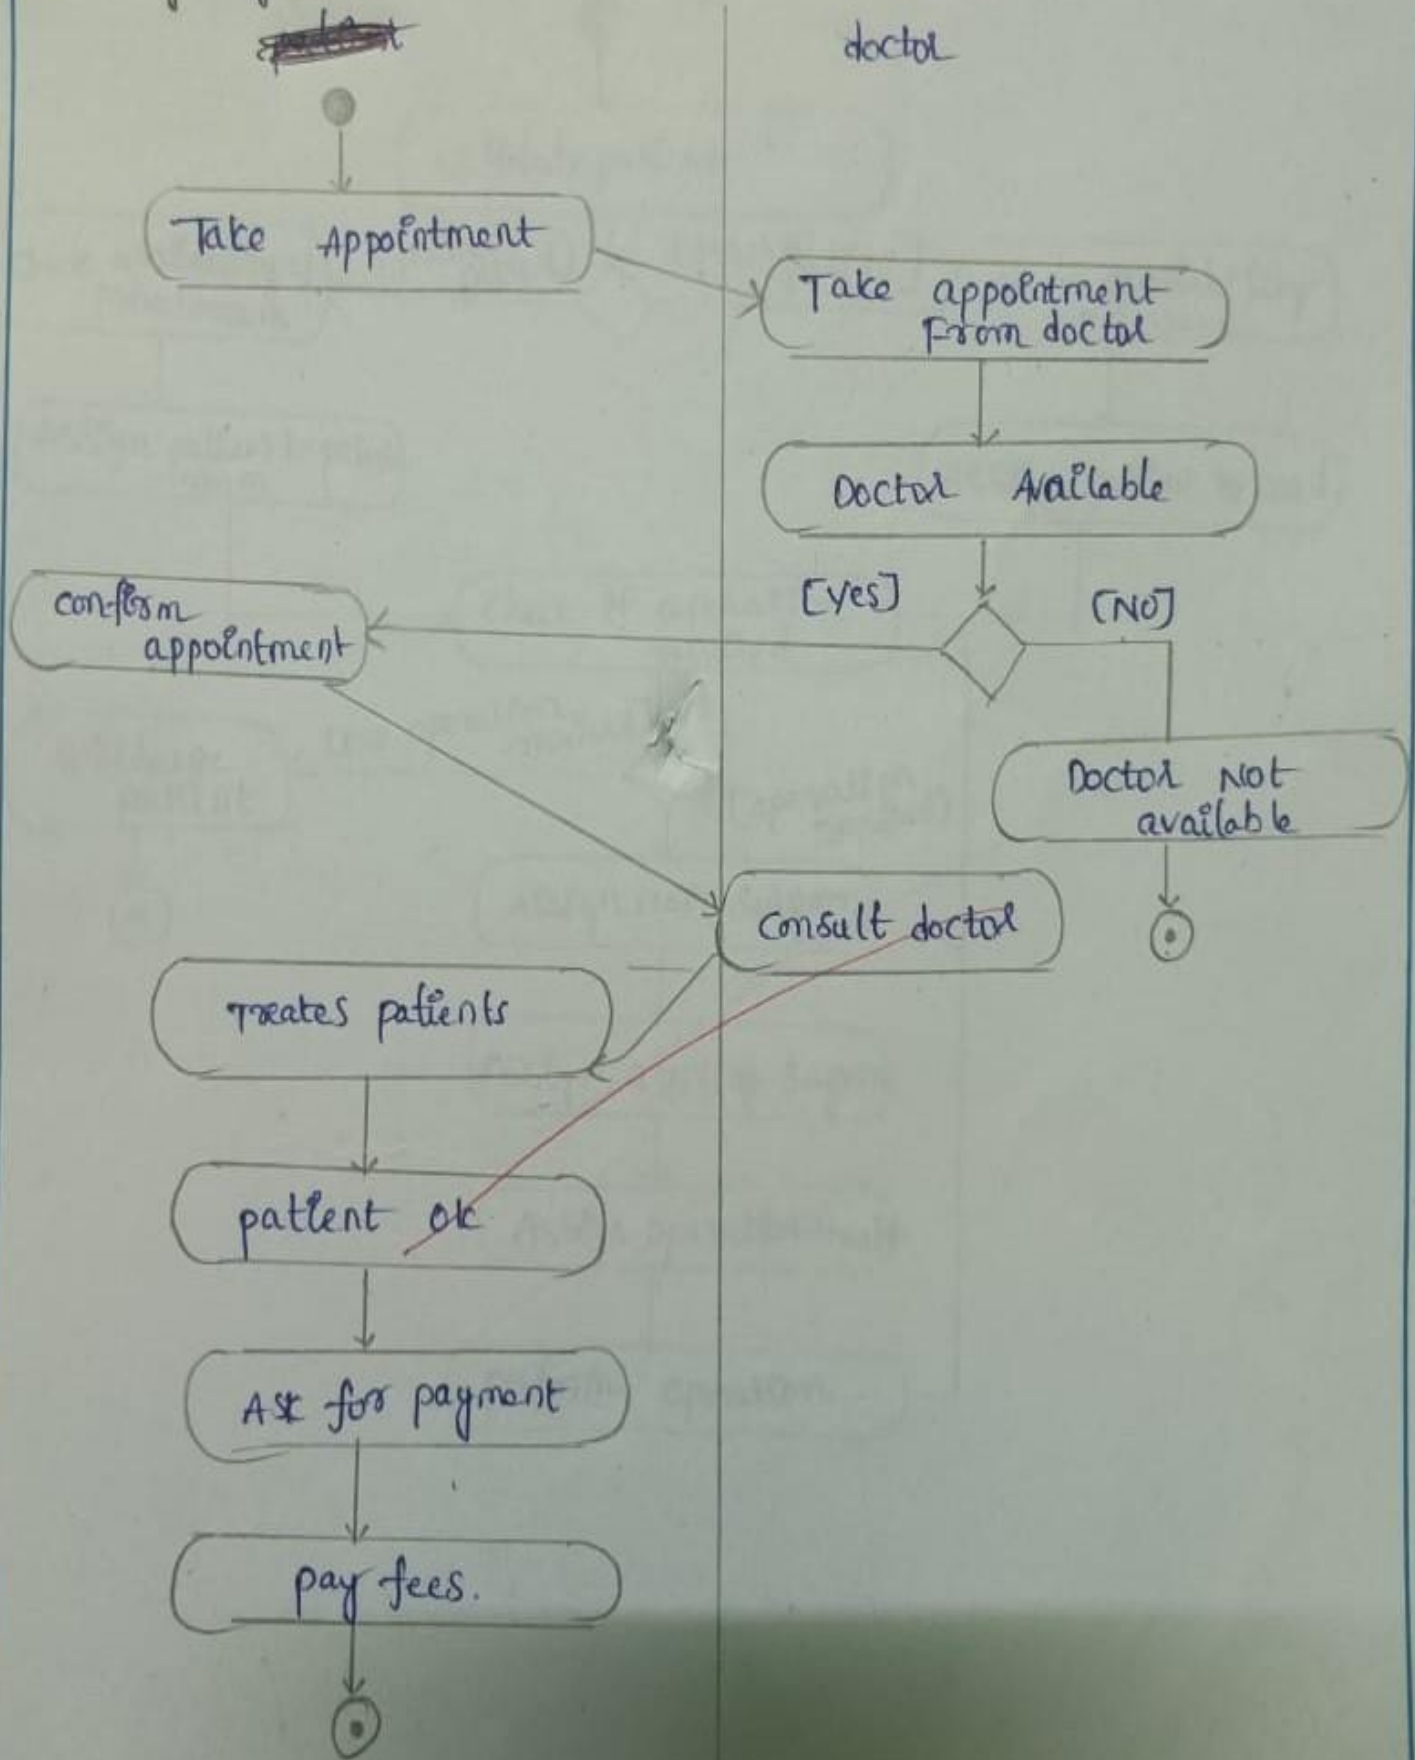 doctor
Take Appointment
Take appointment
From doctor
Doctor Available
[yes]
[NO]
confirm
appointment
Doctor Not
available
consult doctor
Treates patients
patient ok
Ask for payment
pay fees.